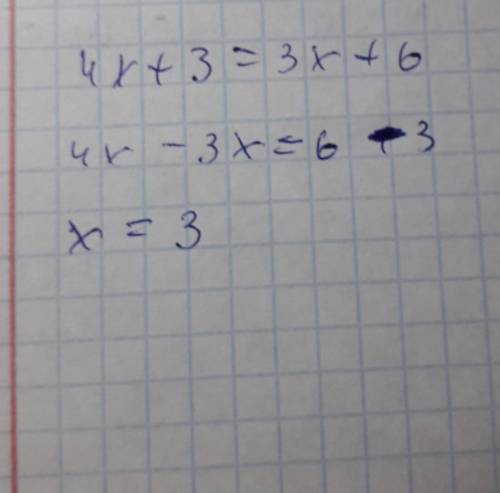 4x + 3 = 3x + 6
4x - 3x = 6 - 3
x = 3